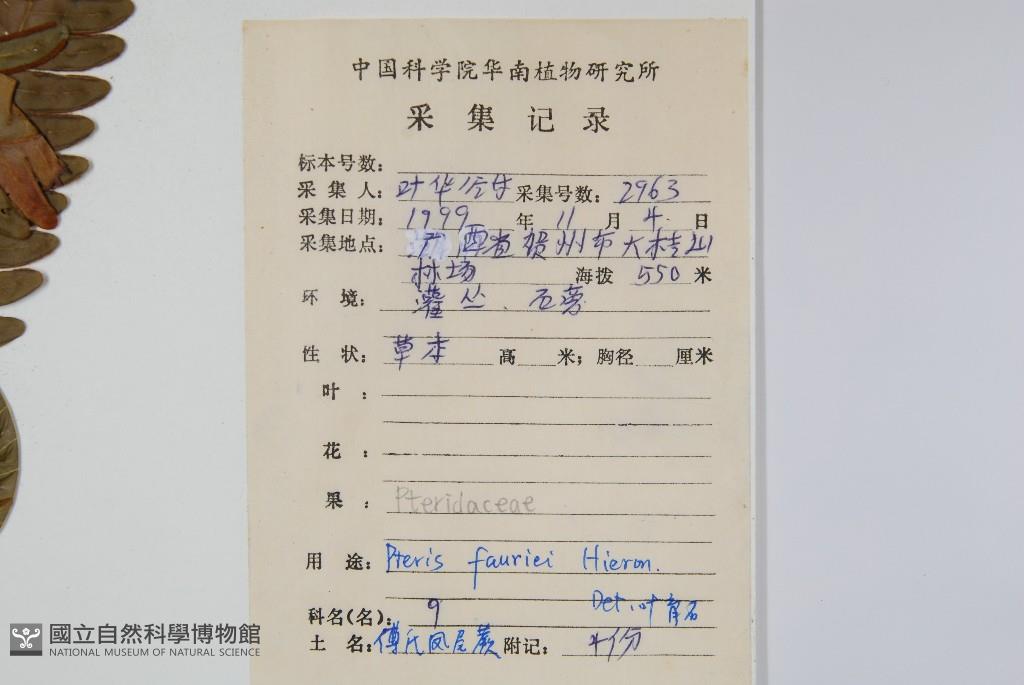 中国科学院华南植物研究所
采集记录
标本号数：
采集人：叶华谷 采集号数：2963
采集日期：1999年11月4日
采集地点：广西省贺州市大桂山
林场 海拨550米
环境：灌丛、石旁
性状：草本 高 米；胸径 厘米
叶：
花：
果：Pteridaceae
用途：Pteris fauriei Hieron.
科名(名)：9 Det. 叶育石
土名：傅氏凤尾蕨 附记：4份
國立自然科學博物館
NATIONAL MUSEUM OF NATURAL SCIENCE